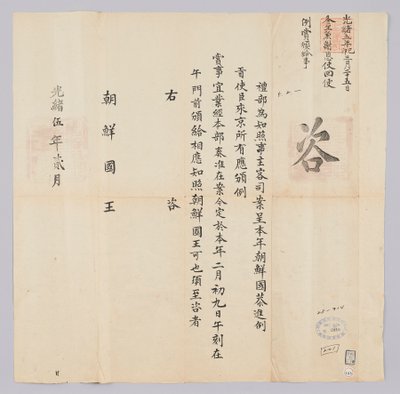 光緒五年己卯三月二十五日
冬至兼謝恩使回便
例賞頒給事
咨
禮部爲知照事主客司案呈本年朝鮮國恭進例
貢使臣來京所有應頒例
賞事宜業經本部奏准在案今定於本年二月初九日午刻在
午門前頒給相應知照朝鮮國王可也須至咨者
右咨
朝鮮國王
光緒伍年貳月